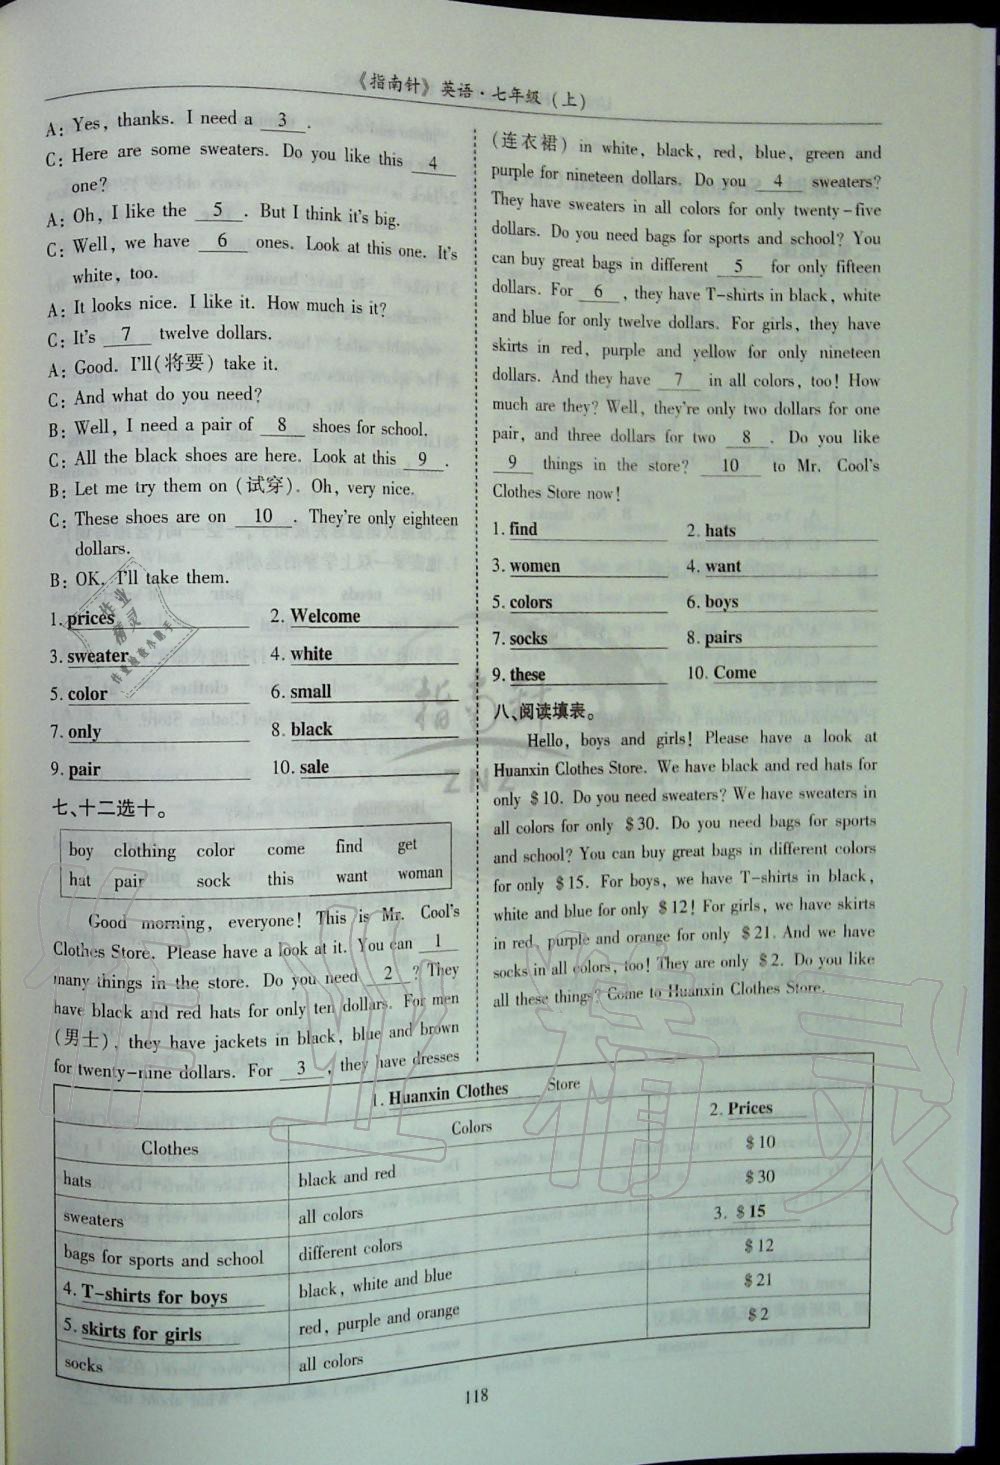 《指南针》英语·七年级(上)
A: Yes, thanks. I need a 3 .
C: Here are some sweaters. Do you like this 4
one?
A: Oh, I like the 5 . But I think it's big.
C: Well, we have 6 ones. Look at this one. It's
white, too.
A: It looks nice. I like it. How much is it?
C: It's 7 twelve dollars.
A: Good. I'll(将要) take it.
C: And what do you need?
B: Well, I need a pair of 8 shoes for school.
C: All the black shoes are here. Look at this 9 .
B: Let me try them on (试穿). Oh, very nice.
C: These shoes are on 10 . They're only eighteen
dollars.
B: OK. I'll take them.
1. prices 2. Welcome
3. sweater 4. white
5. color 6. small
7. only 8. black
9. pair 10. sale
七、十二选十。
boy clothing color come find get
hat pair sock this want woman
Good morning, everyone! This is Mr. Cool's
Clothes Store. Please have a look at it. You can 1
many things in the store. Do you need 2 ? They
have black and red hats for only ten dollars. For men
(男士), they have jackets in black, blue and brown
for twenty-nine dollars. For 3 , they have dresses
(连衣裙) in white, black, red, blue, green and
purple for nineteen dollars. Do you 4 sweaters?
They have sweaters in all colors for only twenty-five
dollars. Do you need bags for sports and school? You
can buy great bags in different 5 for only fifteen
dollars. For 6 , they have T-shirts in black, white
and blue for only twelve dollars. For girls, they have
skirts in red, purple and yellow for only nineteen
dollars. And they have 7 in all colors, too! How
much are they? Well, they're only two dollars for one
pair, and three dollars for two 8 . Do you like
9 things in the store? 10 to Mr. Cool's
Clothes Store now!
1. find 2. hats
3. women 4. want
5. colors 6. boys
7. socks 8. pairs
9. these 10. Come
八、阅读填表。
Hello, boys and girls! Please have a look at
Huanxin Clothes Store. We have black and red hats for
only $10. Do you need sweaters? We have sweaters in
all colors for only $30. Do you need bags for sports
and school? You can buy great bags in different colors
for only $15. For boys, we have T-shirts in black,
white and blue for only $12! For girls, we have skirts
in red, purple and orange for only $21. And we have
socks in all colors, too! They are only $2. Do you like
all these things? Come to Huanxin Clothes Store.
1. Huanxin Clothes Store
Clothes Colors 2. Prices
hats black and red $10
sweaters all colors $30
bags for sports and school different colors 3. $15
4. T-shirts for boys black, white and blue $12
5. skirts for girls red, purple and orange $21
socks all colors $2
118
指南针
ZNZ
作业精灵